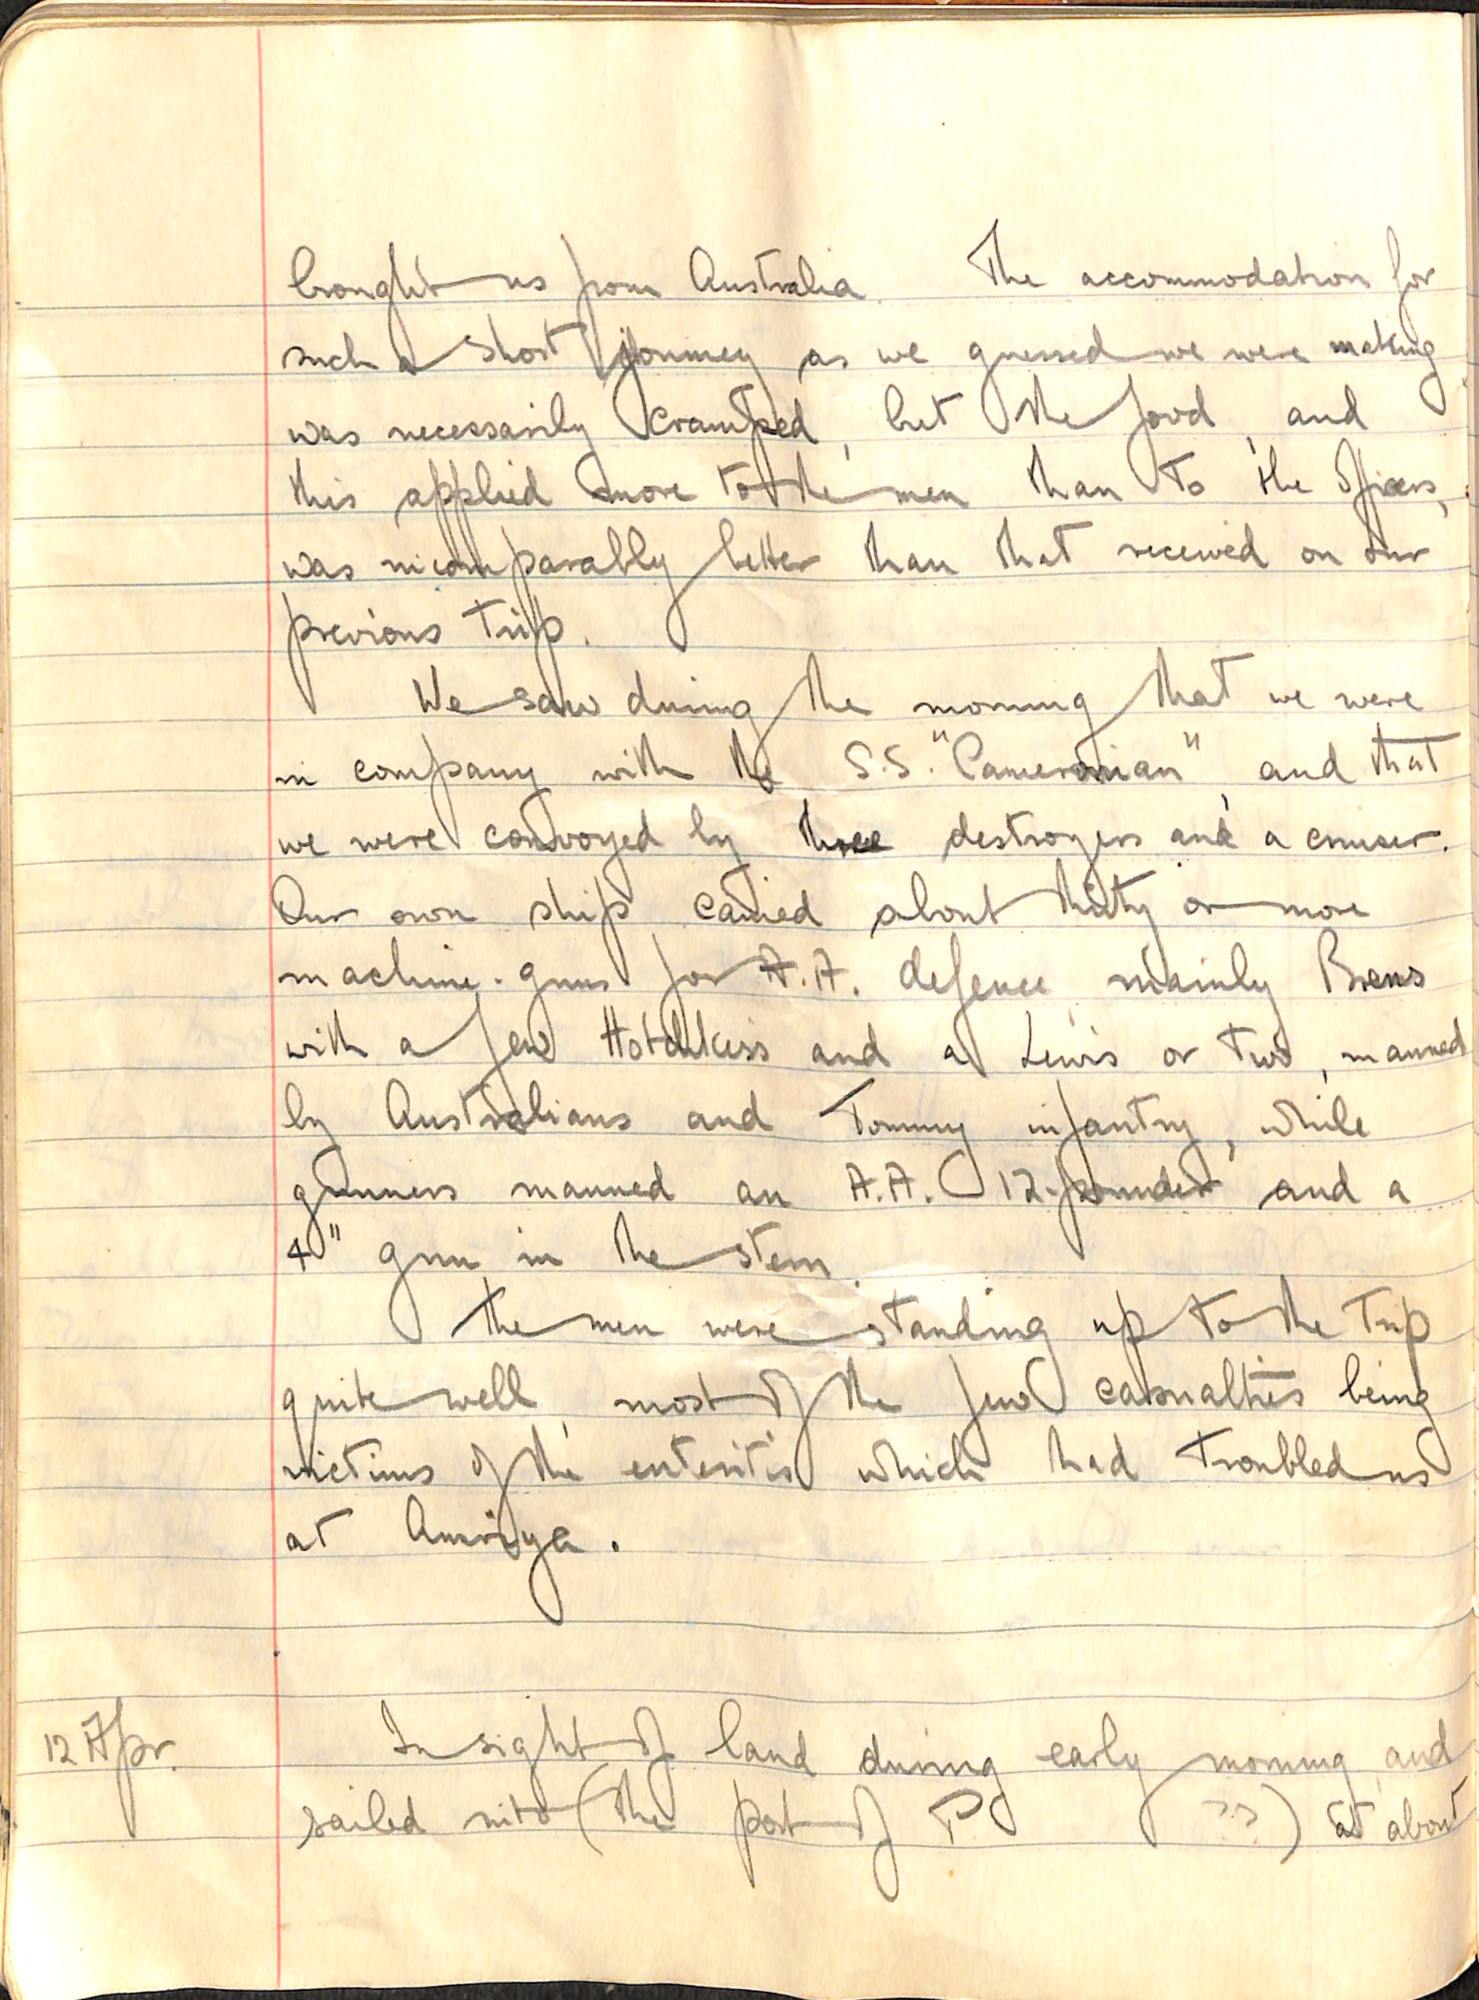 brought us from Australia. The accommodation for
such a short journey as we guessed we were making
was necessarily cramped, but the food, and
this applied more to the men than to the officers,
was incomparably better than that received on our
previous trip.
We saw during the morning that we were
in company with the S.S. "Cameronian", and that
we were convoyed by three destroyers and a cruiser.
Our own ship carried about thirty or more
machine-guns for A.A. defence, mainly Brens
with a few Hotchkiss and a Lewis or two, manned
by Australians and Tommy infantry, while
gunners manned an A.A. 12-pounder and a
4" gun in the stern.
The men were standing up to the trip
quite well, most of the few casualties being
victims of the enteritis which had troubled us
at Amiriya.
12 Apr. In sight of land during early morning, and
sailed into (the port of P ??) at about